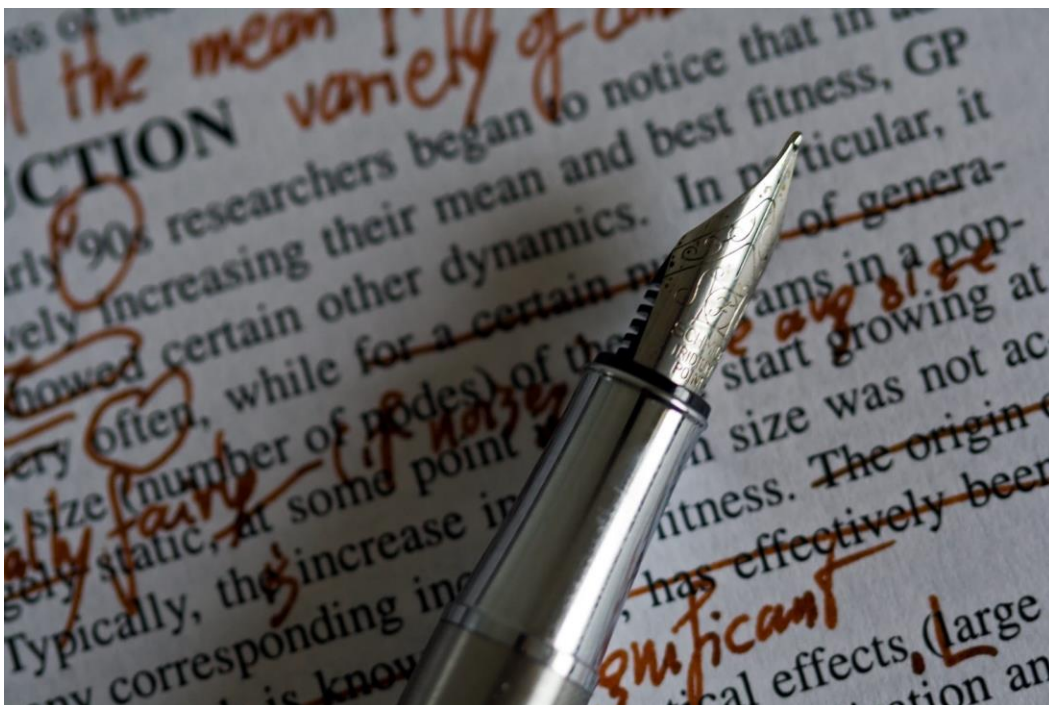 ss of the
the mean
variety of
UCTION
arly 90s researchers began to notice that in
vely increasing their mean and best fitness, GP
howed certain other dynamics. In particular, it
ery often, while for a certain of genera-
size (number of nodes) of the ams in a pop-
e avg size
ally fairly (if noisy
gely static, at some point start growing at
Typically, the increase in n size was not ac
's
ny corresponding inc itness. The origin
is know , has effectively been
gnificant
ical effects, (Large
L
tion an